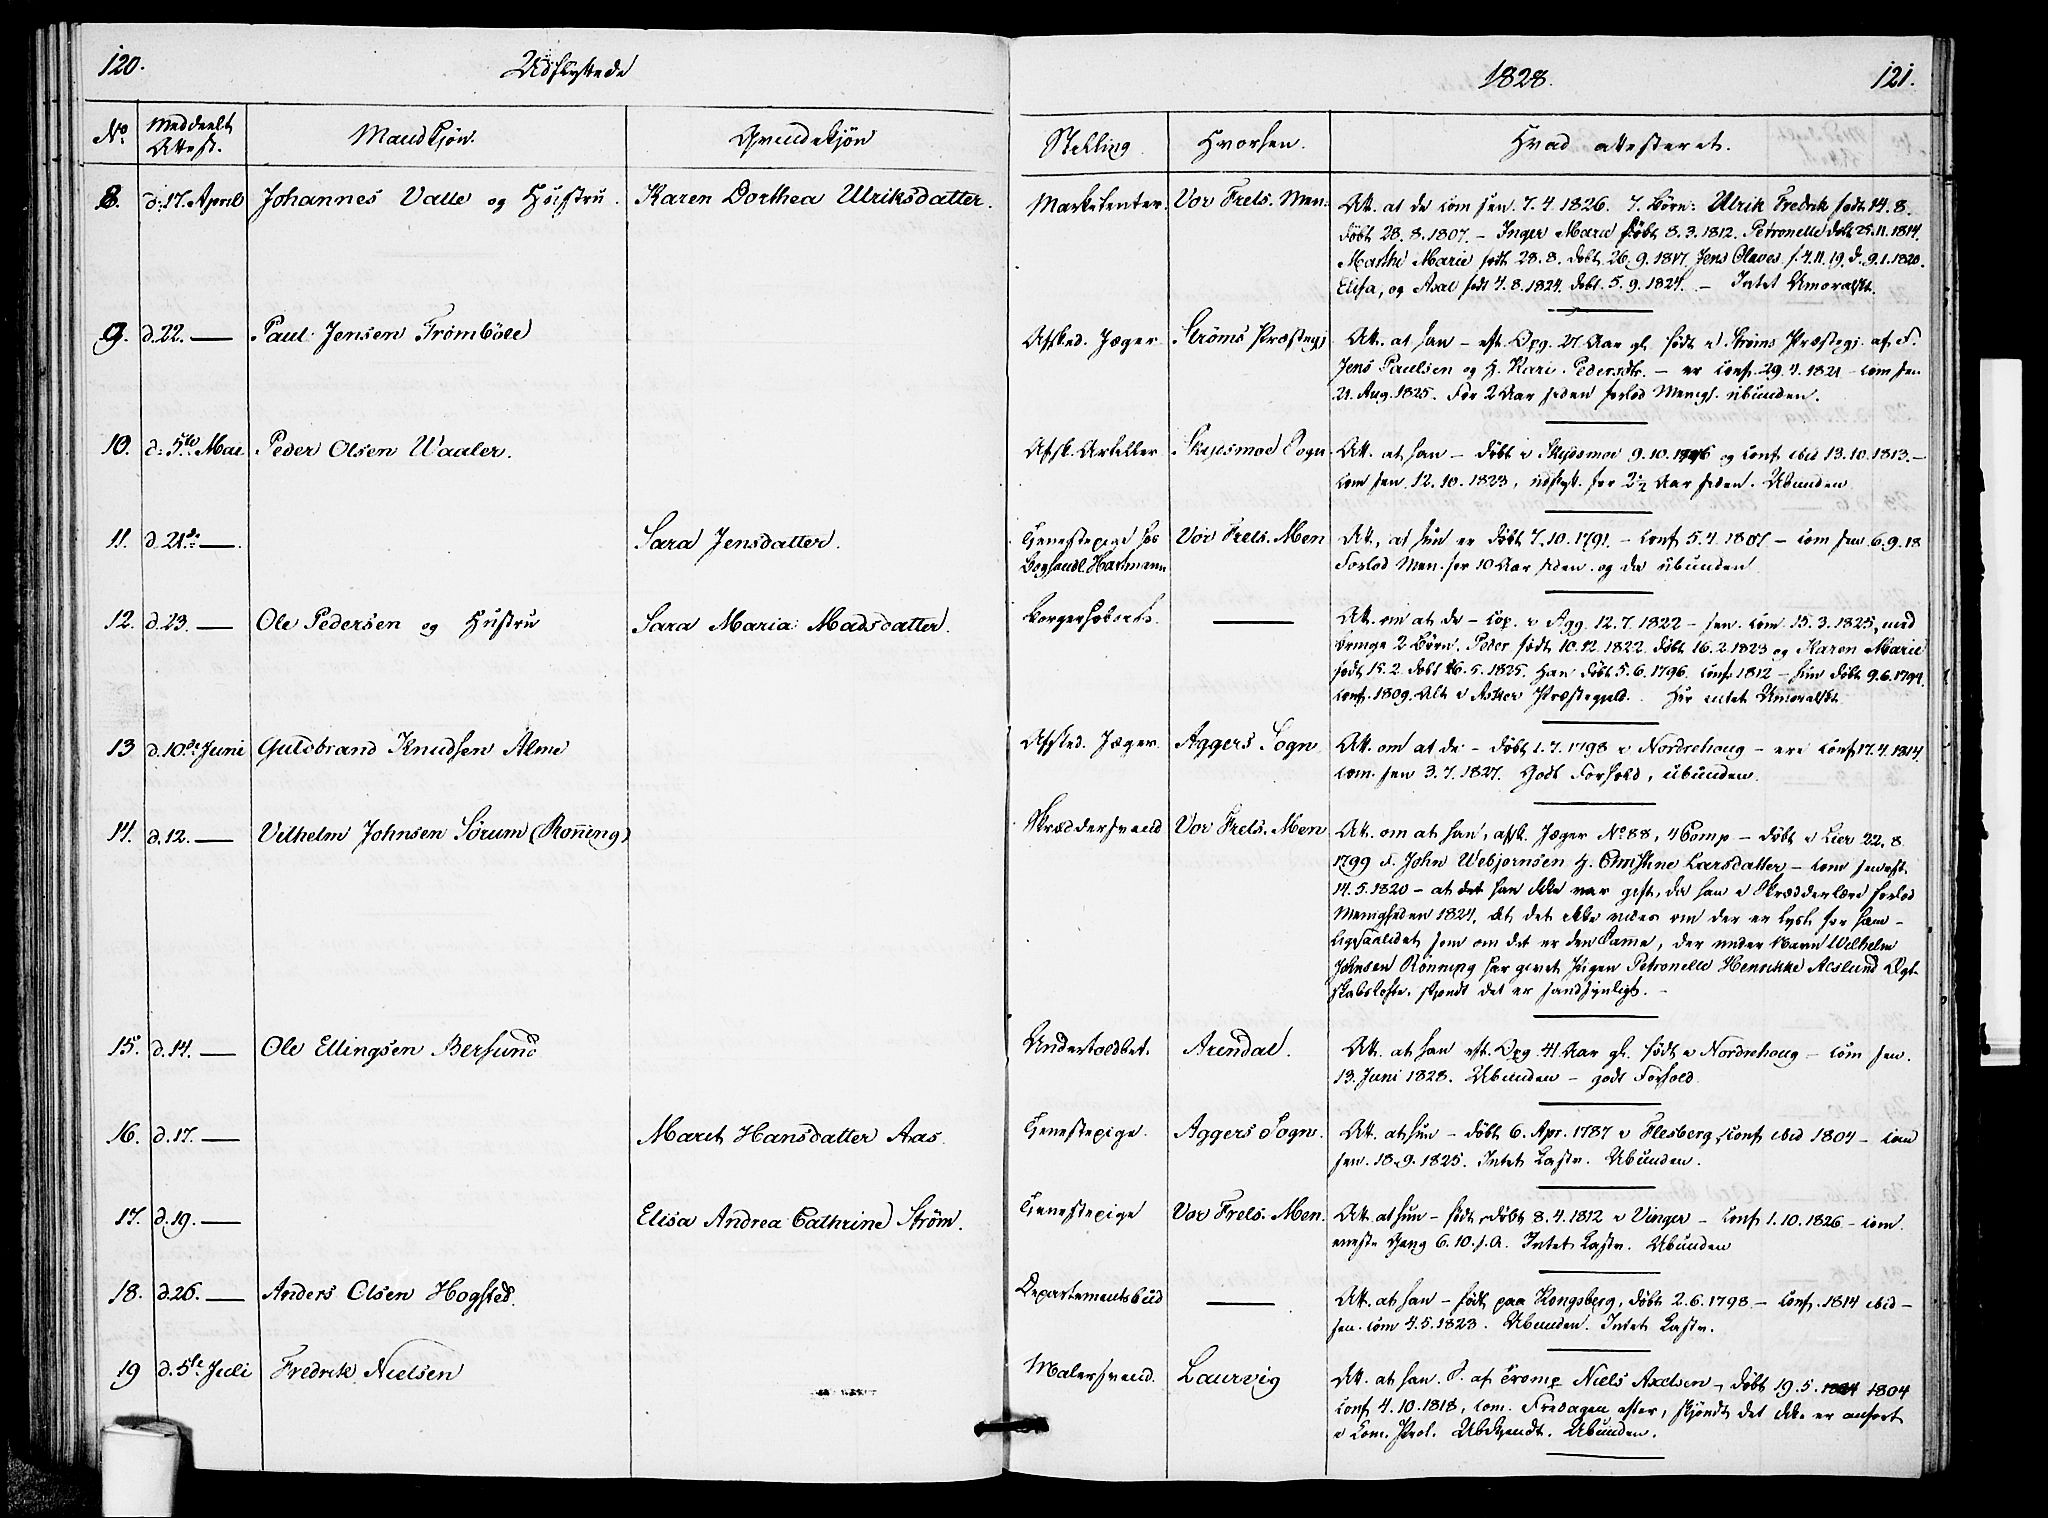 120.
Udflyttede
1828.
121.
No Meddeelt Attest. Mandkjøn. Qvindekjøn Stilling Hvorhen. Hvad attesteret.
8. d. 17. April Johannes Valle og Hustru. Karen Dorthea Ulriksdatter. Marketenter. Vor Frels. Men. Att. at de com sen. 7.4.1826. 7. Børn: Ulrik Fredrik født 14.8.
døbt 28.8.1807. – Inger Marie døbt 8.3.1812. Petronelle døbt 25.11.1814.
Marthe Marie født 28.8. døbt 26.9.1817, Jens Olaves f. 4.11.19. d. 9.1.1820.
Elisa, og Axel født 4.8.1824. døbt. 5.9.1824. – Intet Umoralskt.
9. d. 22. — Paul Jensen Trømbøle Afsked. Jæger. Strøms Præstegj. Att. at han – eft. Opg. 27 Aar gl. født i Strøms Præstegj. af F.
Jens Paulsen og H. Kari Pedersdtr. – er conf. 29.4.1821 – com sen
21. Aug. 1825. For 2 Aar siden forlod Menigh. ubunden.
10. d. 5te Mai Peder Olsen Waaler. Afsk. Artiller. Skydsmoe Sogn Att. at han – døbt i Skydsmoe 9.10.1796 og conf ibid 13.10.1813. –
com sen. 12.10.1823, udflyt. for 2½ Aar siden. Ubunden.
11. d. 21de — Sara Jensdatter. Tjenestepige hos Vor Frels. Men Att. at hun er døbt 7.10.1791. – conf 5.4.1807 – com sen 6.9.18
Boghandl. Hartmann Forlod Men. for 10 Aar siden og da ubunden
12. d. 23. — Ole Pedersen og Hustru Sara Maria Madsdatter. Borgerskoberts. — Att. om at de – cop. i Agg. 12.7.1822 – sen. com. 15.3.1825, med
bringe 2 Børn. Peder født 10.12.1822. døbt 16.2.1823 og Karen Marie
født 15.2. døbt 26.5.1825. Han døbt 5.6.1796. conf 1812 – hun døbt 9.6.1794.
conf. 1809. Alt i Asker Præstegjeld. Her intet Umoralskt.
13 d. 10de Juni Guldbrand Knudsen Alme Afsked. Jæger. Aggers Sogn Att. om at de – døbt 1.7.1798 i Nordrehoug – ere conf 17.4.1814.
com. sen 3.7.1827. Godt Forhold, ubunden.
14. d. 12. — Vilhelm Johnsen Sørum (Rønning) Skræddersvend Vor Frels. Men Att. om at han, afsk. Jæger No 88, 4 Comp – døbt i Lier 22.8.
1799 F. John Webjørnsen H. Christine Larsdatter – com senest
14.5.1820 – at det han ikke var gift, da han i Skrædderlære forlod
Menigheden 1824. At det ikke vides om der er lyst for ham –
Ligesaalidet som om det er den samme, der under Navn Wilhelm
Johnsen Rønning har givet Pigen Petronelle Henrikke Aeslund Ægt-
skabsløfte, skjøndt det er sandsynligt. –
15. d. 14. — Ole Ellingsen Bersund Undertoldbet. Arendal. Att. at han eft. Opg. 41 Aar gl. født i Nordrehoug – com sen.
13. Juni 1828. Ubunden – godt Forhold.
16. d. 17. — Maret Hansdatter Aas. Tjenestepige. Aggers Sogn. Att. at hun – døbt 6. Apr. 1787 i Flesberg, conf ibid 1804 – com
sen. 18.9.1825. Intet Lastv. Ubunden.
17. d. 19. — Elisa Andrea Cathrine Strøm. Tjenestepige Vor Frels. Men. Att. at hun – født, døbt 8.4.1812 i Vinger – conf 1.10.1826 – com
eneste Gang 6.10. s.A. Intet Lastv. Ubunden
18. d. 26. — Anders Olsen Hogsted. Departementsbud — Att. at han – født paa Kongsberg, døbt 2.6.1798 – conf. 1814 ibid –
sen. com 4.5.1823. Ubunden. Intet Lastv.
19 d. 5te Juli Fredrik Nielsen Malersvend. Laurvig Att. at han. S. af Tromp Niels Axelsen – døbt 19.5. 1804
conf 4.10.1818, com. Fredagen efter, skjøndt det ikke er anført
i Com. Prot. Ubekjendt. Ubunden.